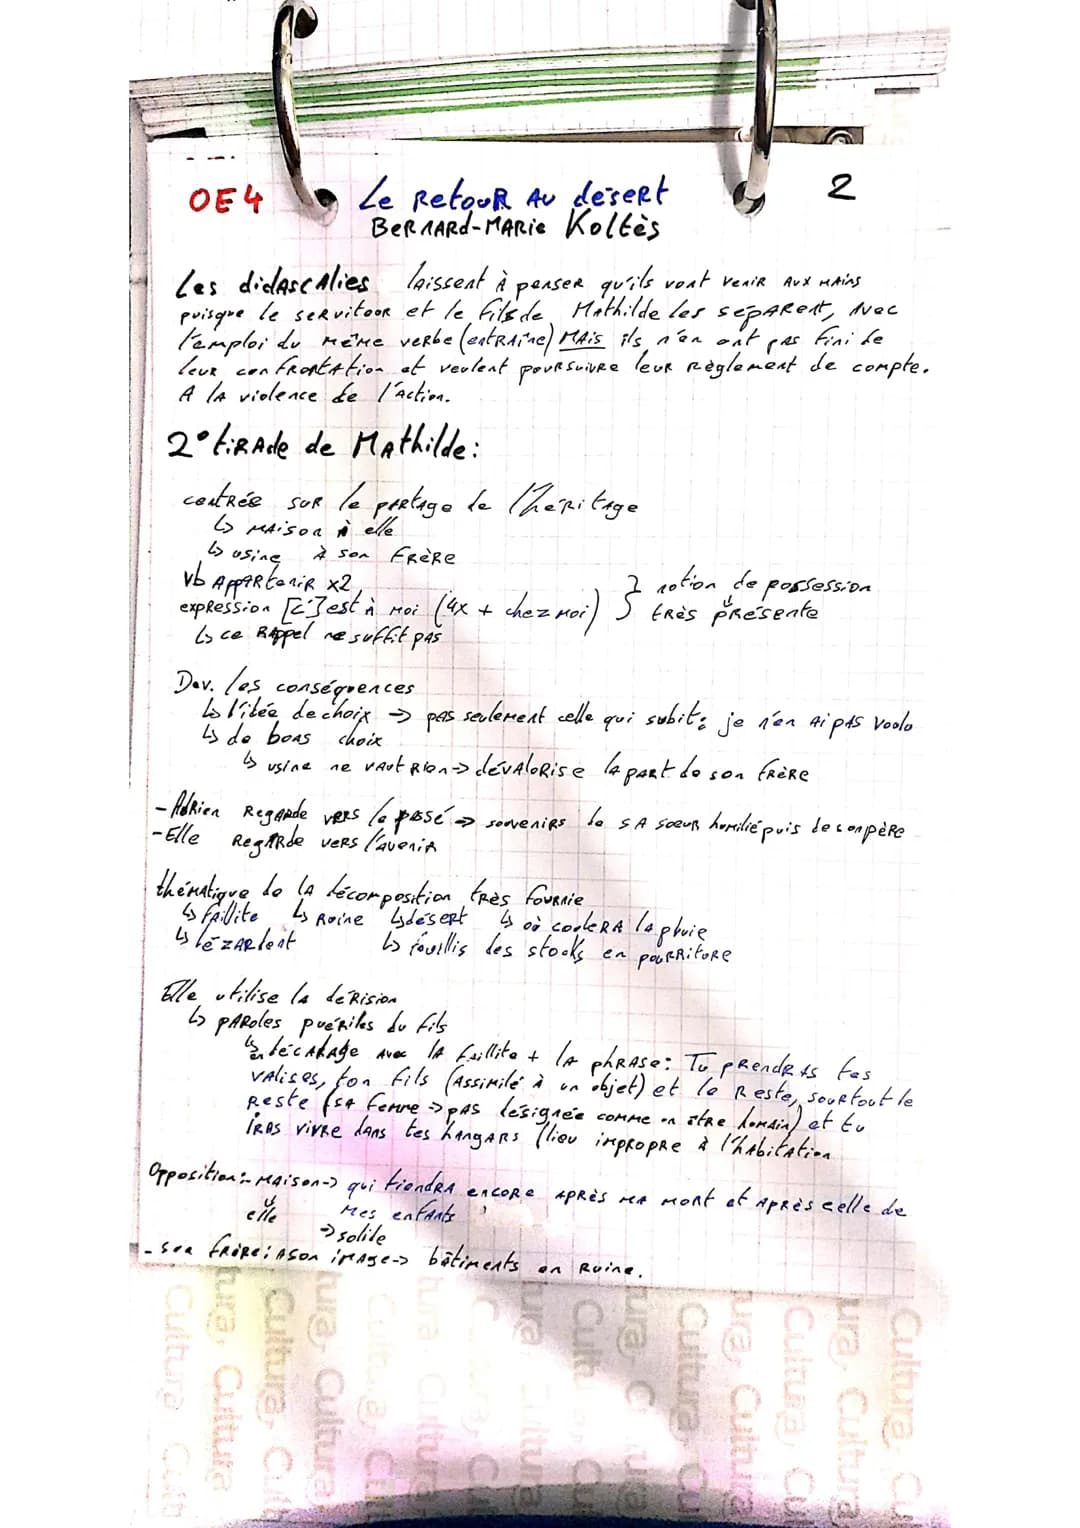 OE4 Le Retour Au désert 2
Bernard-Marie Koltès
Les didascalies laissent à penser qu'ils vont venir aux mains
puisque le serviteur et le fils de Mathilde les séparent, avec
l'emploi du même verbe (entraîne) MAis ils n'en ont pas fini de
leur confrontation et veulent poursuivre leur règlement de compte.
A la violence de l'action.
2° tirade de Mathilde:
centrée sur le partage de l'héritage
↳ maison à elle
↳ usine à son frère
vb appartenir x2 } notion de possession
expression [c']est à moi (4x + chez moi) } très présente
↳ ce rappel ne suffit pas
Dev. les conséquences
↳ l'idée de choix → pas seulement celle qui subit: je n'en ai pas voulu
↳ de bons choix
↳ usine ne vaut rien → dévalorise la part de son frère
- Adrien regarde vers le passé → souvenirs de sa soeur humiliée puis de son père
- Elle regarde vers l'avenir
thématique de la décomposition très fournie
↳ faillite ↳ Ruine ↳ désert ↳ où coulera la pluie
↳ lézardent ↳ fouillis des stocks en pourriture
Elle utilise la dérision
↳ paroles puériles du fils
↳ en décalage avec la faillite + la phrase: Tu prendras tes
valises, ton fils (assimilé à un objet) et le reste, surtout le
reste (sa femme → pas désignée comme un être humain) et tu
iras vivre dans tes hangars (lieu impropre à l'habitation
Opposition: - maison → qui tiendra encore après ma mort et après celle de
elle mes enfants
→ solide
- son frère: à son image → bâtiments en ruine.
Cultura Cultura Cultura Cultura